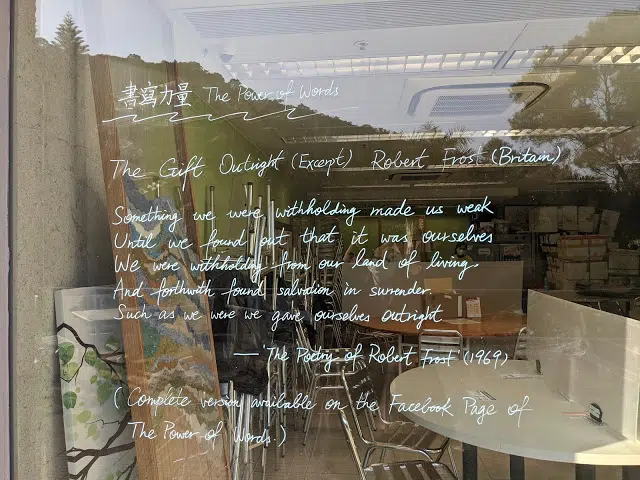 書寫力量 The Power of Words
The Gift Outright (Excerpt) Robert Frost (Britain)
Something we were withholding made us weak
Until we found out that it was ourselves
We were withholding from our land of living.
And forthwith found salvation in surrender.
Such as we were we gave ourselves outright
— 'The Poetry of Robert Frost' (1969)
(Complete version available on the Facebook Page of
The Power of Words.)